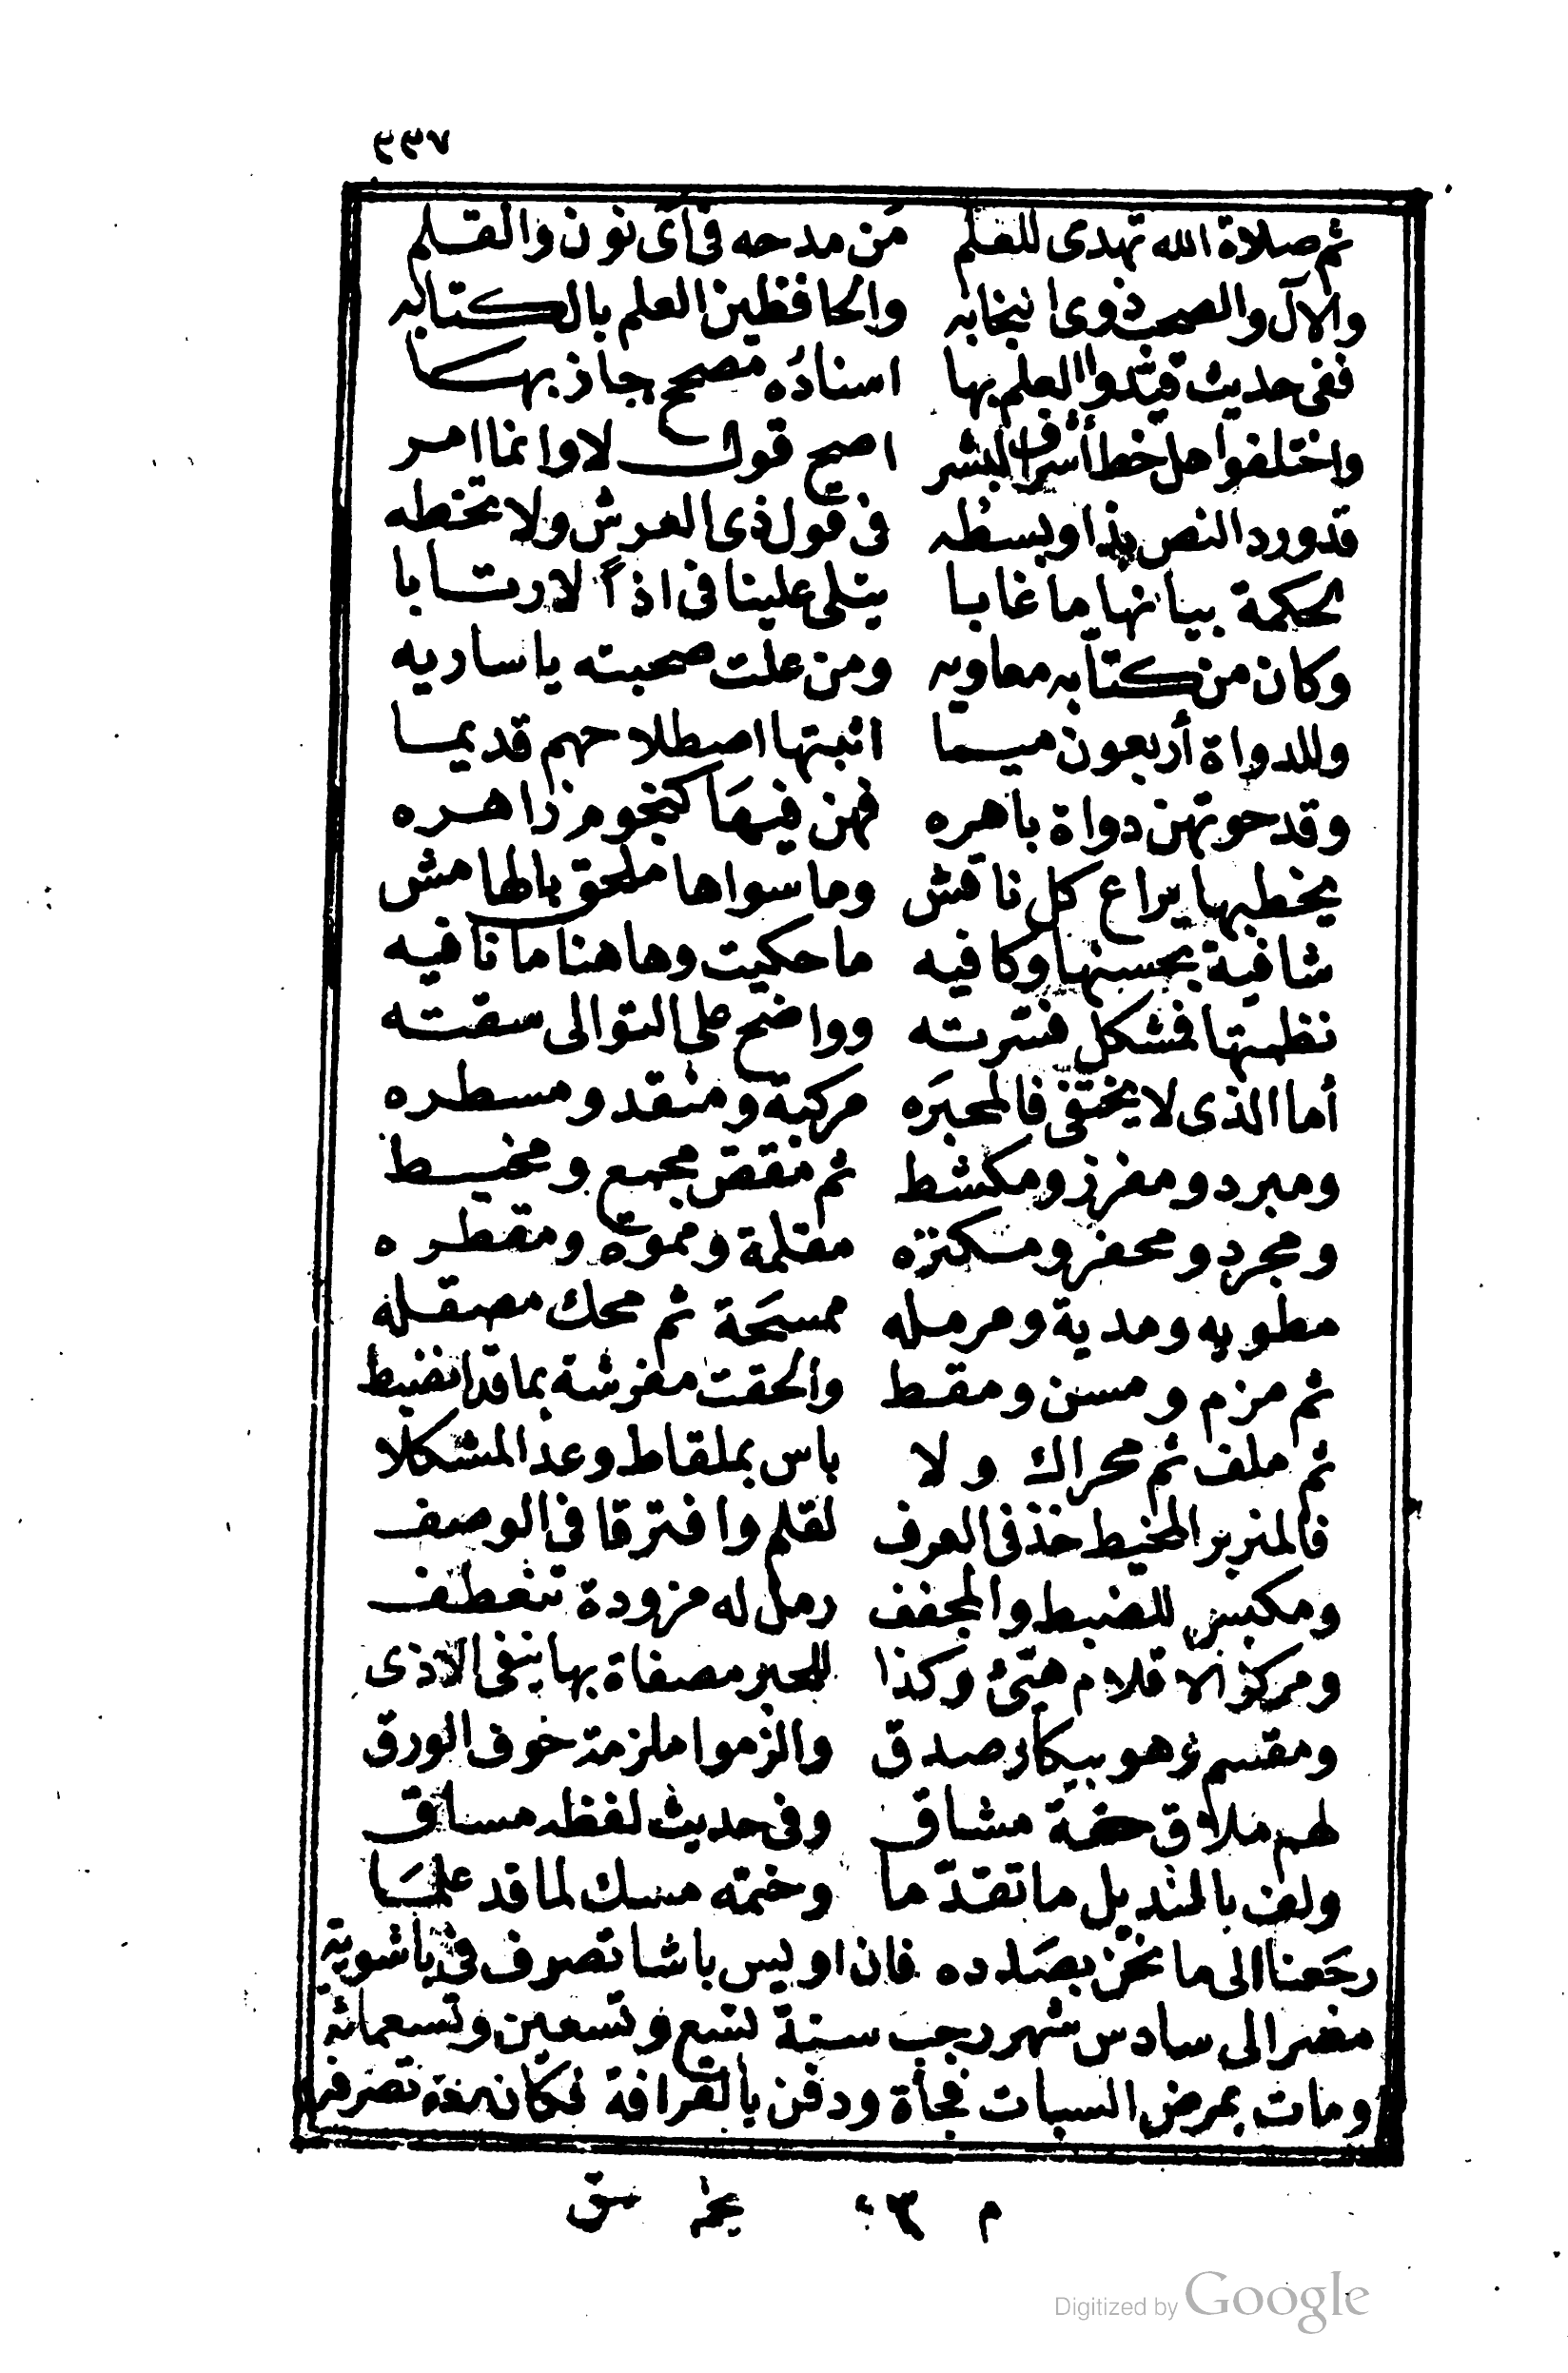 ٢٣٧
ثم صلاة الله تهدى للعلم من مدحه فى آى نون والقلم
والآل والصحب ذوى النجابه والحافظين العلم بالكتابه
ففى حديث قيدوا العلم بها اسناده مصحح جاز بها
واختلفوا هل خط أشرف البشر اصح قول لا وانما امر
قد ورد النص بذا وبسطه فى قول ذى العرش ولا تخطه
لحكمة بيانها ما غابا يتلى علينا فى اذاً لارتابا
وكان من كتابه معاويه ومن علت صحبته يا ساريه
وللدواة أربعون ميما اثبتها اصطلاحهم قديما
وقد حوتهن دواة باهره فهن فيها كنجوم زاهره
يخطبها يراع كل ناقش وما سواها ملحق بالهامش
شافية بحسنها وكافيه ما حكيت وها هنا ما نافيه
نظمتها فمشكل فسرته وواضح على التوالى سقته
أما الذى لا يختفى فالمحبره مركبة ومنقد ومسطره
ومبرد ومفرز ومكشط ثم مقص مجمع ومخيط
ومجرد ومحفر ومسكتره مقلمة ومموه ومقطره
مطويه ومدية ومرمله ممسحة ثم محك مصقله
ثم مزم ومسن ومقط والحقت مفرشة بما قد انضبط
ثم ملف ثم محراك ولا باس بملقاط وعد المشكلا
فالمزبر المخيط خذ فى العرف لقلم وافترقا فى الوصف
ومكبس للضبط والمجفف رمل له مزودة تنعطف
ومركز الاقلام هيئ وكذا للحبر مصفاة بها ينفى الاذى
ومقسم وهو بيكار صدق والزموا ملزمة خوف الورق
لهم ملاق مشاق وفى حديث لفظه مساق
ولف بالمنديل ما تقدما وختمه مسك لما قد علما
رجعنا الى ما نحن بصدده فان اويس باشا تصرف فى باشوية
مصر الى سادس شهر رجب سنة تسع وتسعين وتسعمائة
ومات بمرض السبات فجأة ودفن بالقرافة فكان مدة تصرفه
م ٤٣ نى سق
Digitized by Google